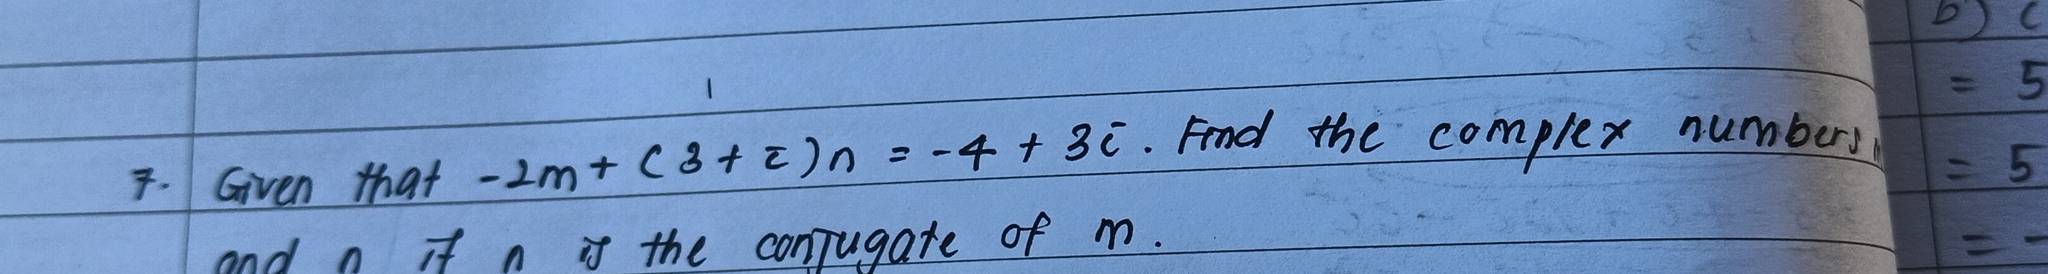 b) C
= 5
7. Given that -2m + (3 + i)n = -4 + 3i. Find the complex numbers
= 5
and n if n is the conjugate of m.
= -